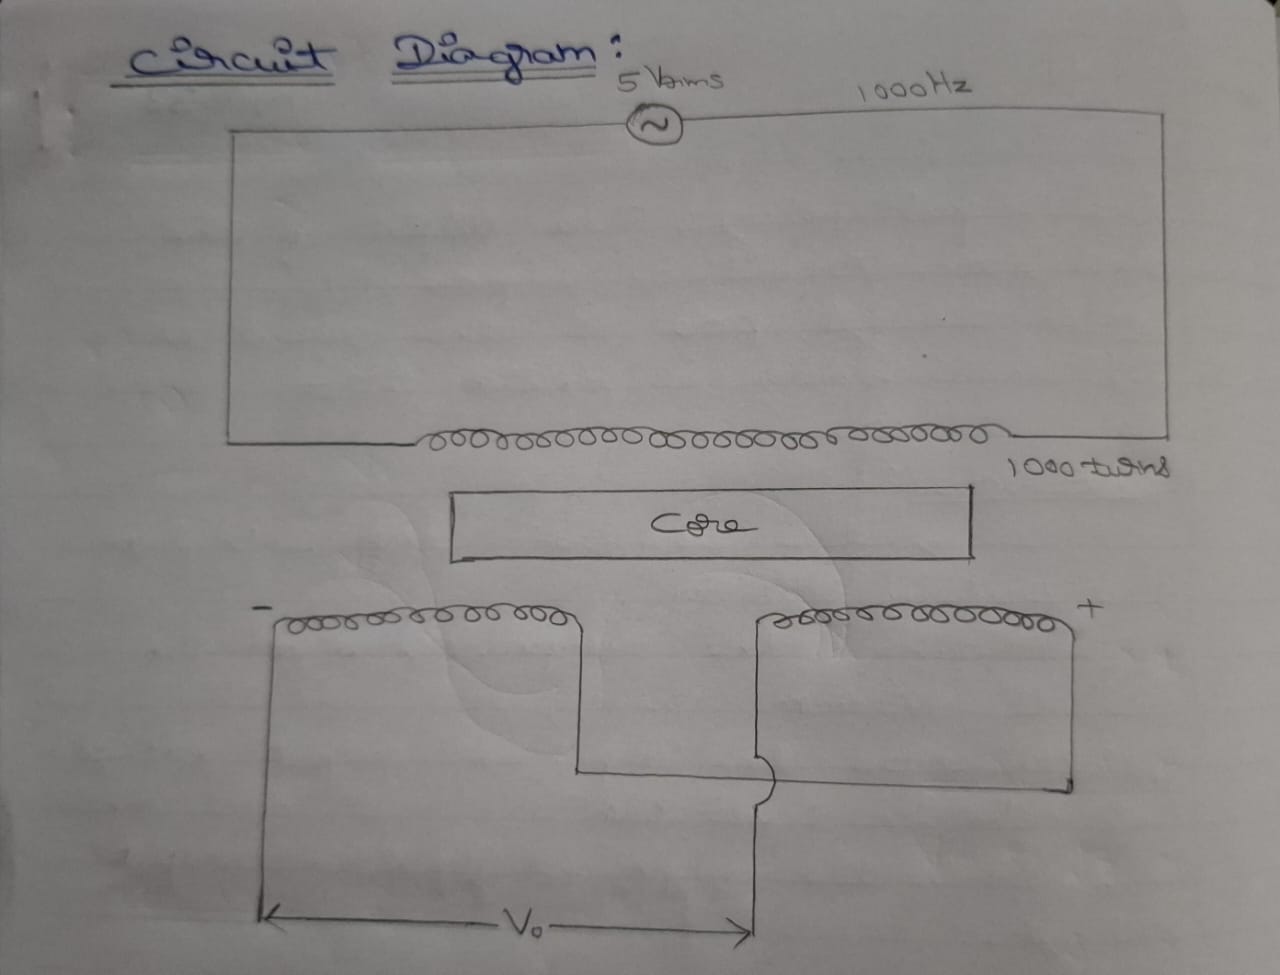 Circuit Diagram:
5 Vrms
1000Hz
~
1000 turns
Core
- +
V₀